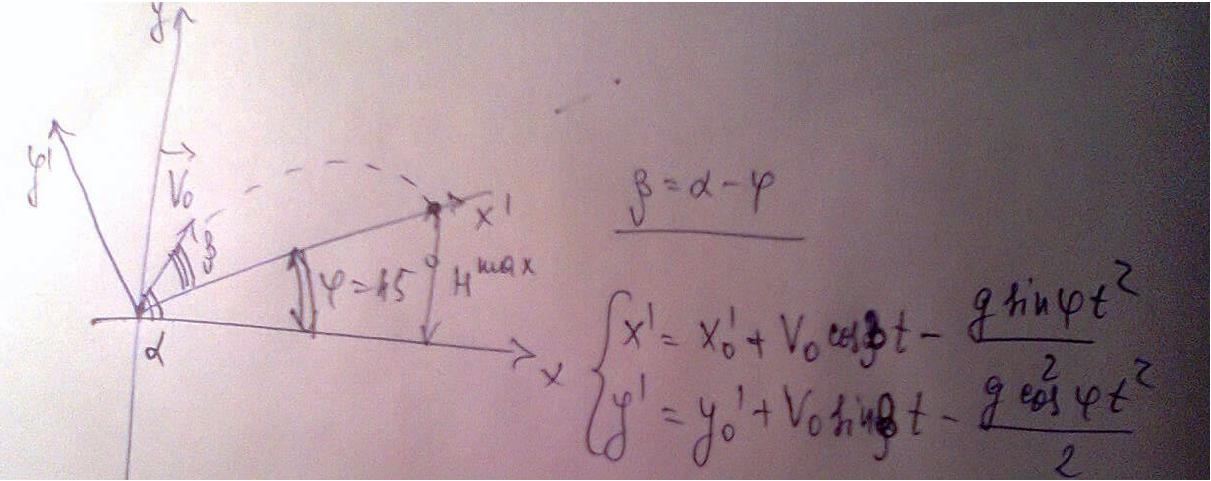 y
y'
V₀
β
x'
φ=45
H max
α
x
β = α - φ
x' = x₀' + V₀ cosβ t - g sinφ t² / 2
y' = y₀' + V₀ sinβ t - g cosφ t² / 2